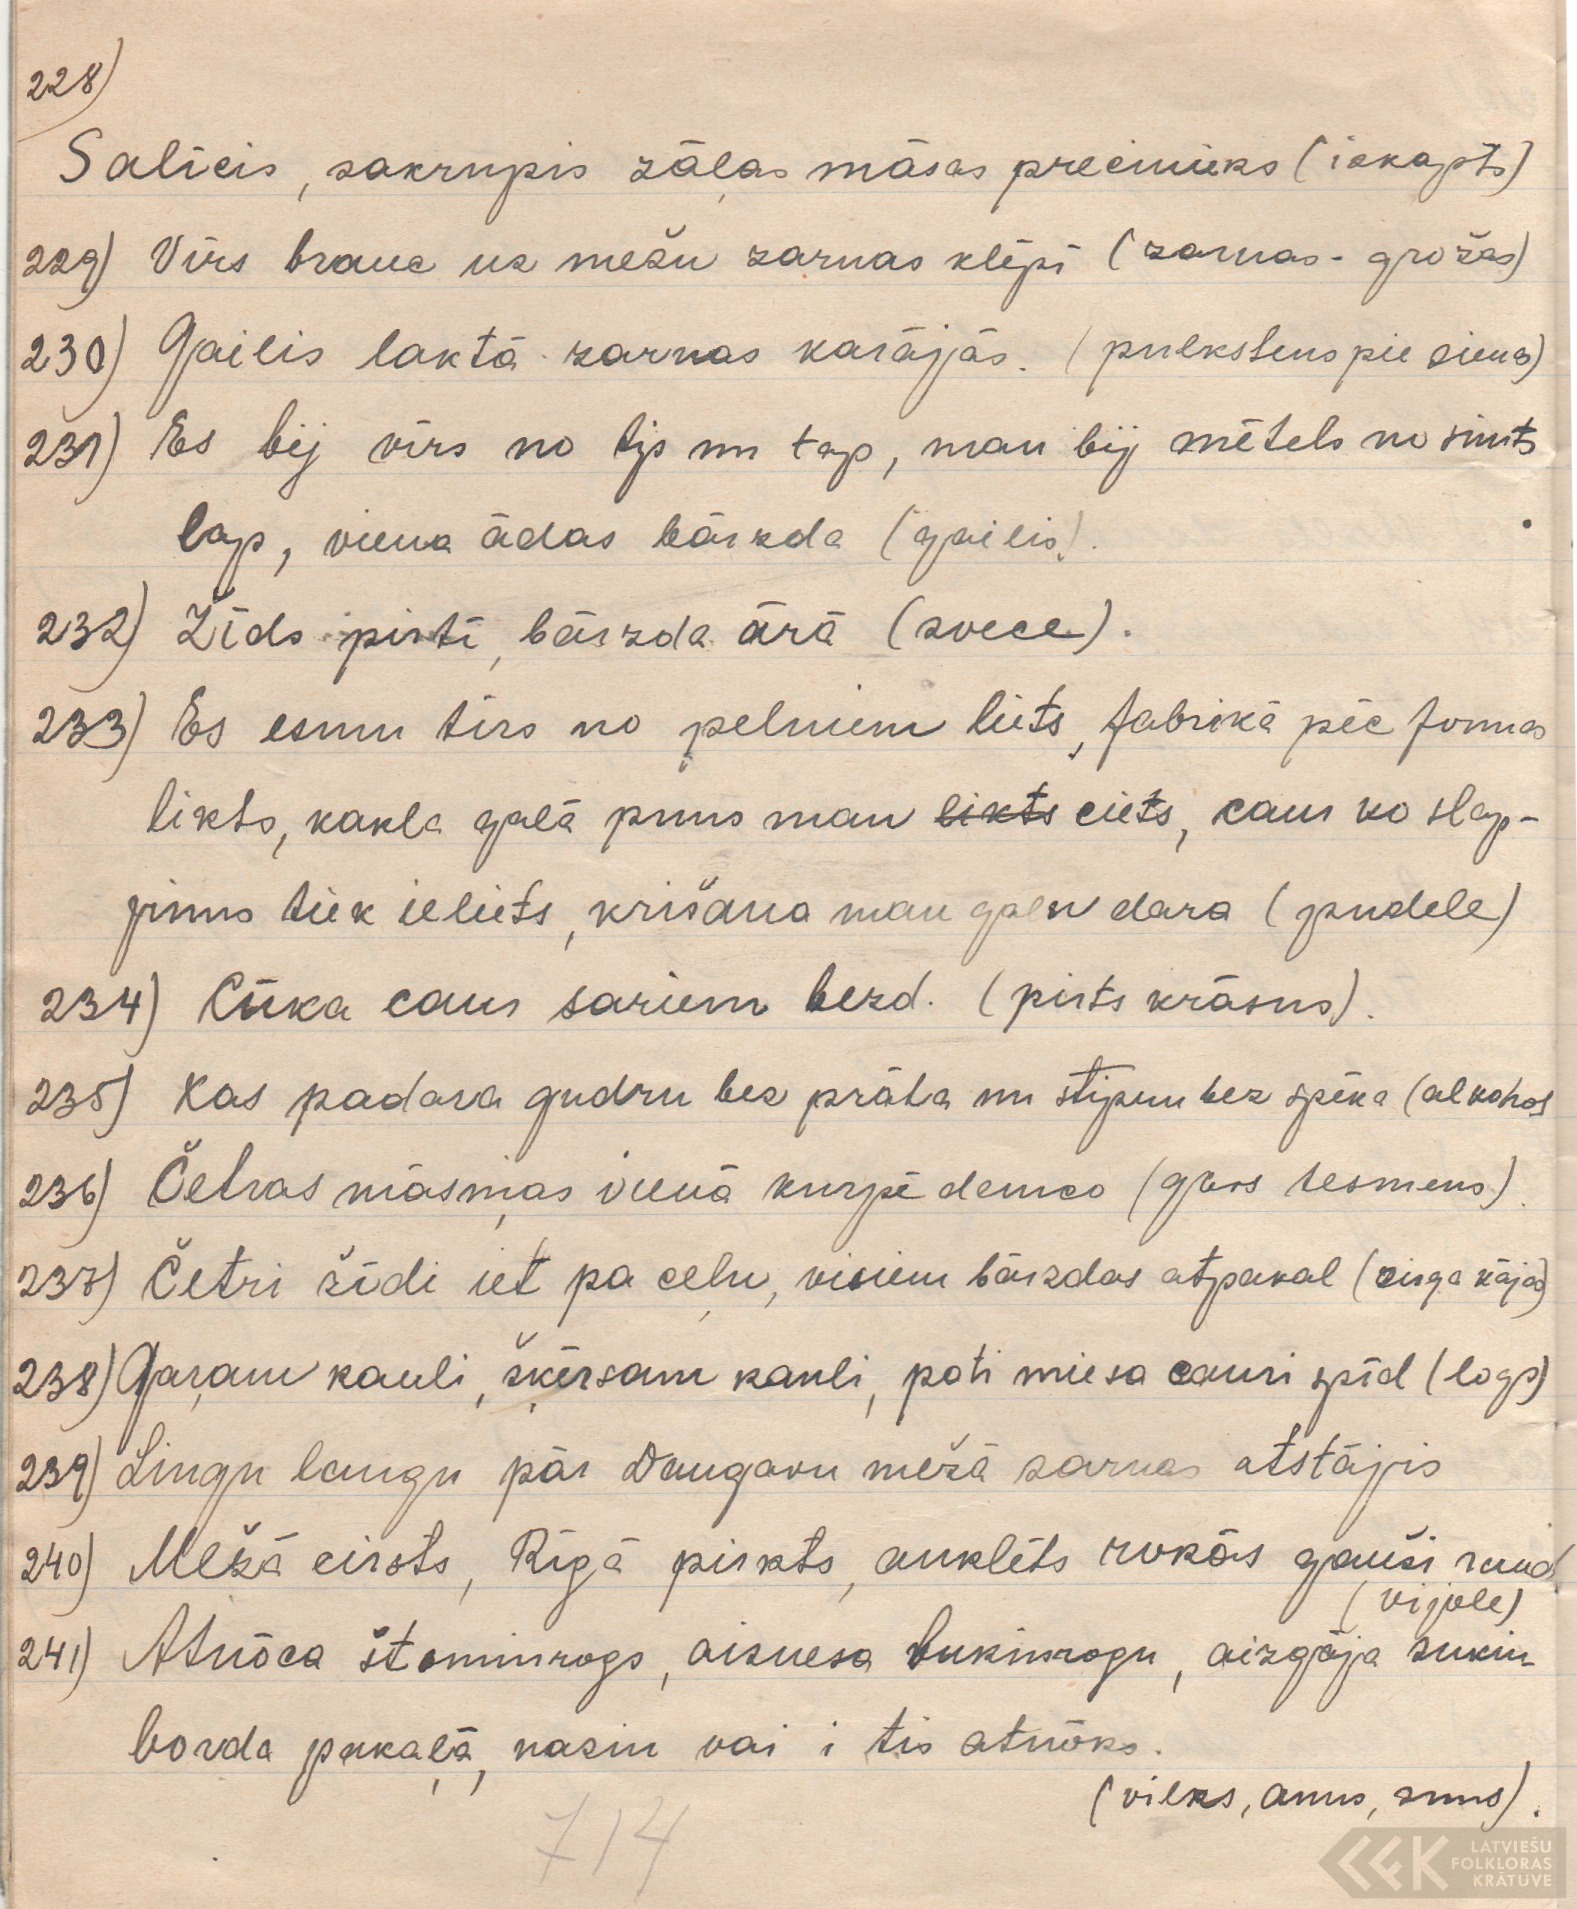 228)
Salīcis, sakrupis zāļas māsas precinieks (izkapts)
229) Vīrs brauc uz mežu zarnas klēpī (zarnas - grožas)
230) Gailis laktā zarnas karājās. (pulkstens pie sienas)
231) Es bij vīrs no tjs un tap, man bij mētels no simts
lap, viena ādas bārzda (gailis).
232) Žīds pirtī, bārzda ārā (svece).
233) Es esmu tīrs no pelniem liets, fabrikā pēc formas
likts, kakla galā pruns man likts ciets, caur ko slap-
jinus tiek ieliets, krišana man galu dara (pudele)
234) Cūka caur sariem bezd. (pirts krāsns).
235) Kas padara gudru bez prāta un stipru bez spēka (alkohols
236) Četras māsiņas vienā kurpē danco (gavs tesmens).
237) Četri žīdi iet pa ceļu, visiem bārzdas atpakal (zirga kājas)
238) Gaŗam kauli, šķērsam kauli, pati miesa cauri spīd (logs)
239) Lingu langu pār Daugavu mežā zarnas atstājis
240) Mežā cirsts, Rīgā pirkts, auklēts rokās gauži raud
(vijole)
241) Atnōca štominrogs, aiznesa bukinrogu, aizgāja sukin-
borda pakaļā, nazin vai i tis atnōks.
(vilks, auns, suns).
714
LATVIEŠU
FOLKLORAS
KRĀTUVE